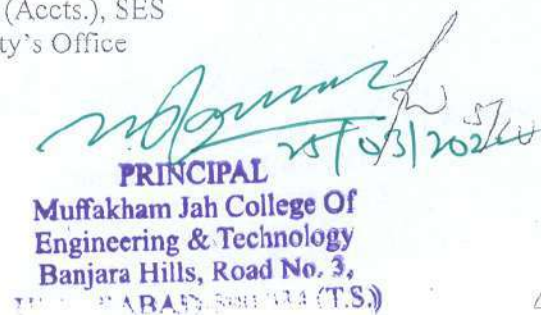 (Accts.), SES
ty's Office
25/03/202
PRINCIPAL
Muffakham Jah College Of
Engineering & Technology
Banjara Hills, Road No. 3,
(T.S.)